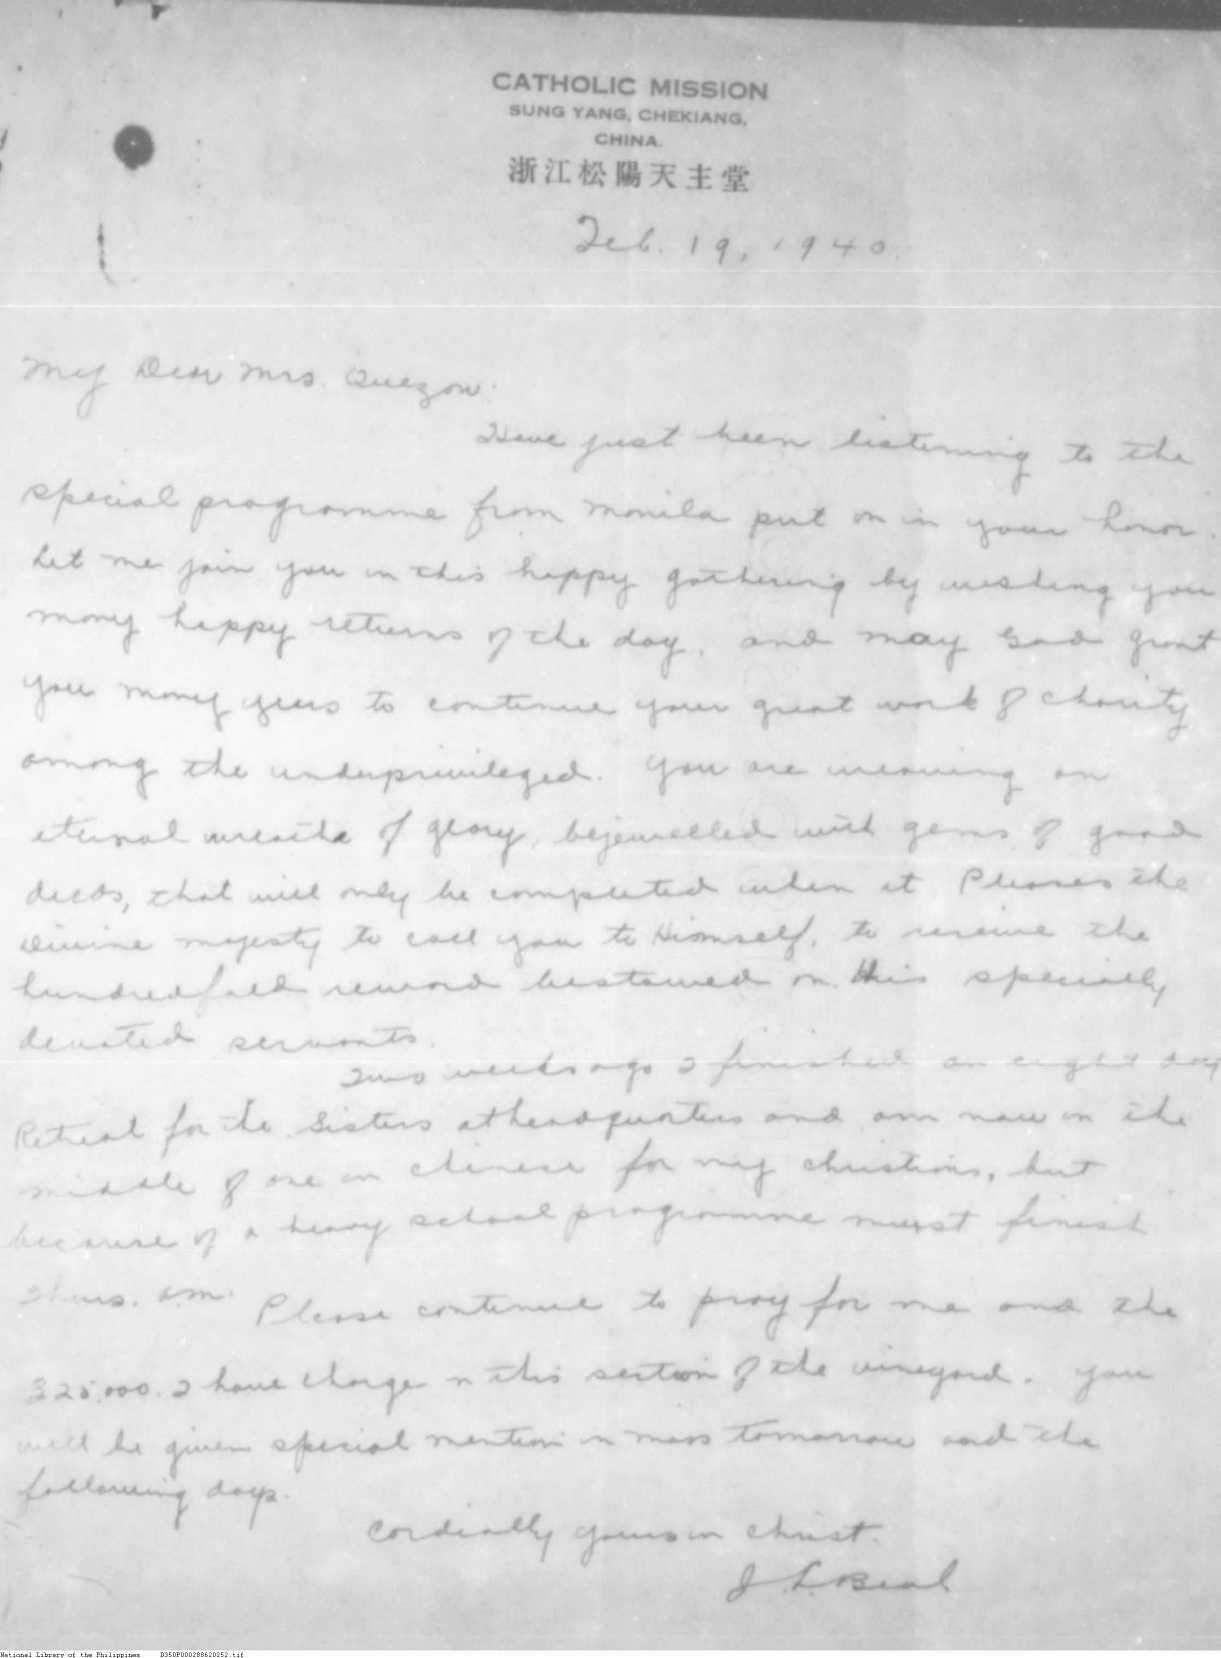 CATHOLIC MISSION
SUNG YANG, CHEKIANG,
CHINA.
浙江松陽天主堂
Feb. 19, 1940.
My Dear Mrs. Quezon:
Have just been listening to the
special programme from Manila put on in your honor.
Let me join you in this happy gathering by wishing you
many happy returns of the day, and may God grant
you many years to continue your great work of charity
among the underprivileged. You are weaving an
eternal wreath of glory, bejewelled with gems of good
deeds, that will only be completed when it Pleases the
Divine majesty to call you to Himself, to receive the
hundredfold reward bestowed on His specially
devoted servants.
Two weeks ago I finished an eight day
Retreat for the Sisters at headquarters and am now in the
middle of one in Chinese for my christians, but
because of a heavy school programme must finish
Thurs. a.m. Please continue to pray for me and the
325,000 I have charge in this section of the vineyard. You
will be given special mention in mass tomorrow and the
following days.
Cordially yours in Christ.
J. L. Beal
National Library of the Philippines D350P000288620252.tif